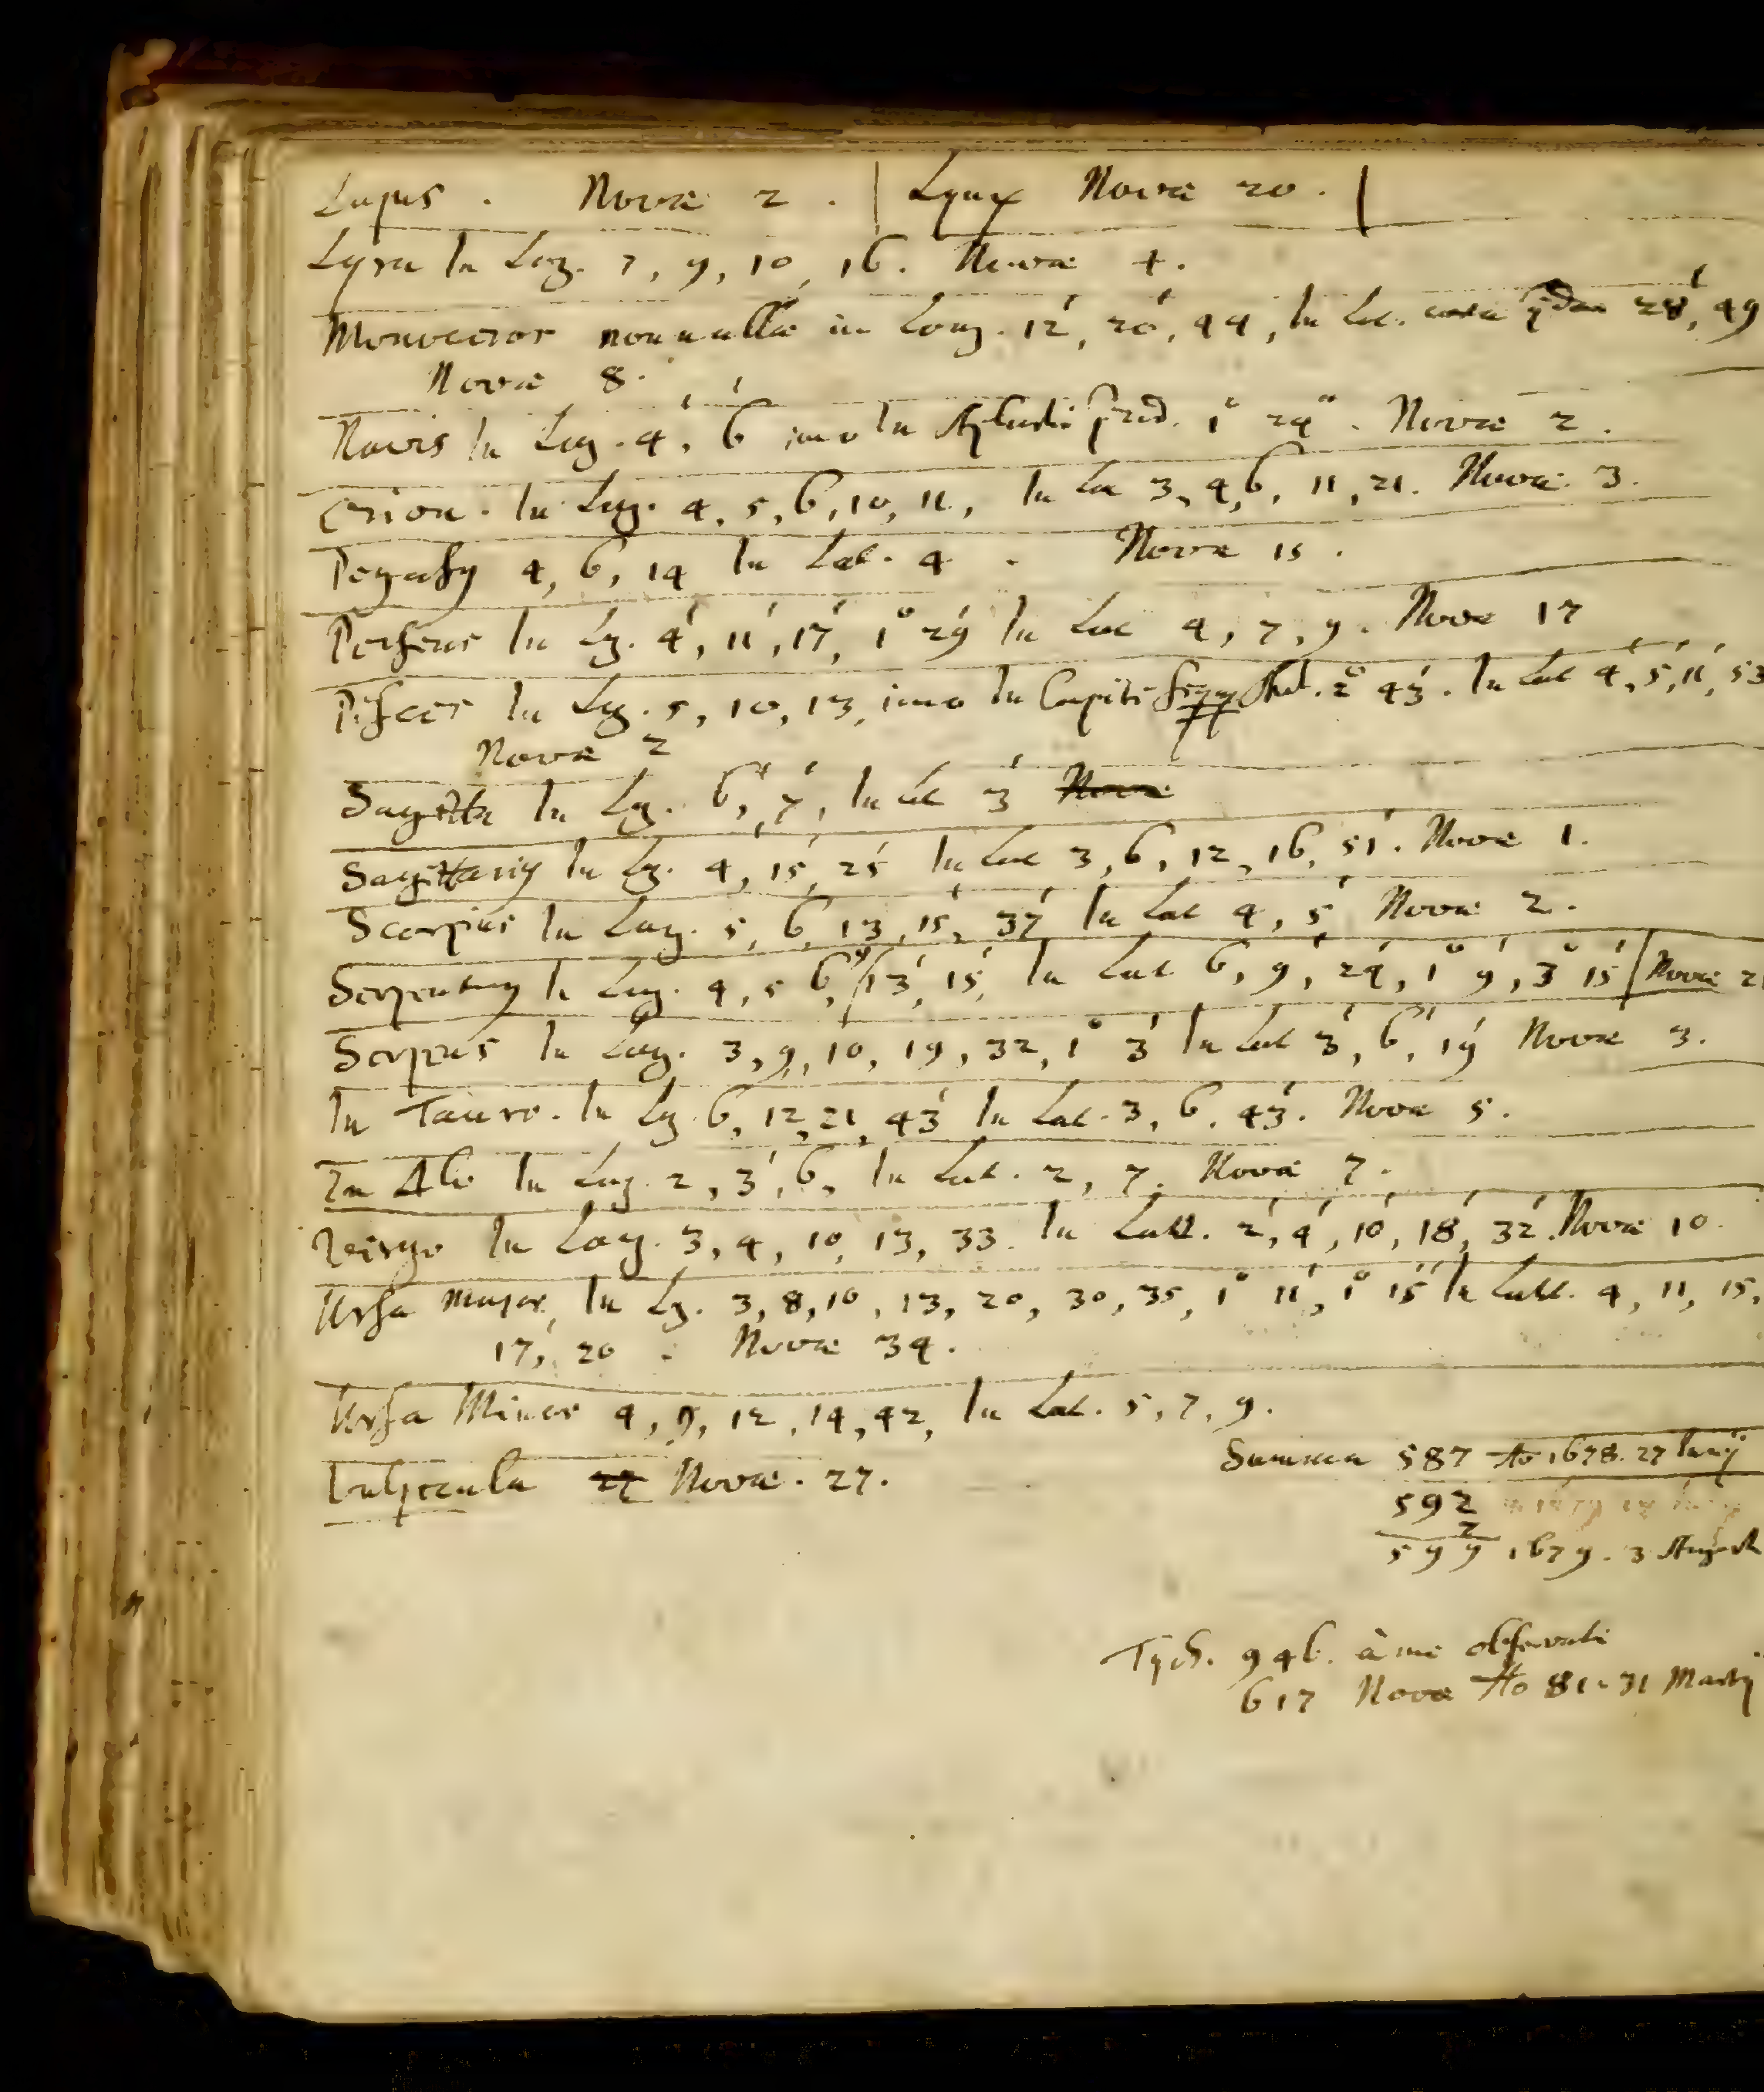 Lupus . Novæ 2 . | Lynx Novæ 20 . |
Lyra In Log. 7, 9, 10, 16. Novæ 4.
Monoceros nonnullæ in Long. 12', 20', 44, In Lat. 28', 49
Novæ 8.
Navis In Log. 4', 6' imo In præd. 1° 24". Novæ 2.
Orion. In Log. 4, 5, 6, 10, 11, In Lat 3, 4, 6, 11, 21. Novæ 3.
Pegasy 4, 6, 14 In Lat. 4 . Novæ 15 .
Perseus In Lg. 4', 11', 17', 1° 29' In Lat 4, 7, 9. Novæ 17
Pisces In Lg. 5, 10, 13, imo In Capite 2° 43'. In Lat 4', 5', 11', 53
Novæ 2
Sagitta In Lg. 6', 7', In Lat 3' Novæ
Sagittariy In Lg. 4, 15', 25' In Lat 3, 6, 12, 16, 51'. Novæ 1.
Scorpius In Log. 5, 6, 13, 15, 37 In Lat 4, 5' Novæ 2.
Serpentary In Log. 4, 5 6, 13', 15', In Lat 6, 9', 24', 1° 9', 3° 15' | Novæ 2
Serpens In Log. 3, 9, 10, 19, 32, 1° 3' In Lat 3', 6', 19' Novæ 3.
In Tauro. In Lg 6, 12, 21, 43' In Lat. 3, 6, 43'. Novæ 5.
In Δlo In Log. 2, 3', 6, In Lat. 2, 7. Novæ 7.
Virgo In Log. 3, 4, 10, 13, 33. In Latt. 2', 4', 10', 18', 32'. Novæ 10.
Ursa Major, In Lg. 3, 8, 10, 13, 20, 30, 35, 1° 11', 1° 15' In Latt. 4, 11, 15,
17, 20 . Novæ 34.
Ursa Minor 4, 9, 12, 14, 42, In Lat. 5, 7, 9.
Vulpecula 27 Novæ. 27.
Summa 587 Ao 1678. 27 Iunij
592
599 1679. 3 August
Tych. 946. à me observatæ
617 Novæ Ao 81. 31 Martij